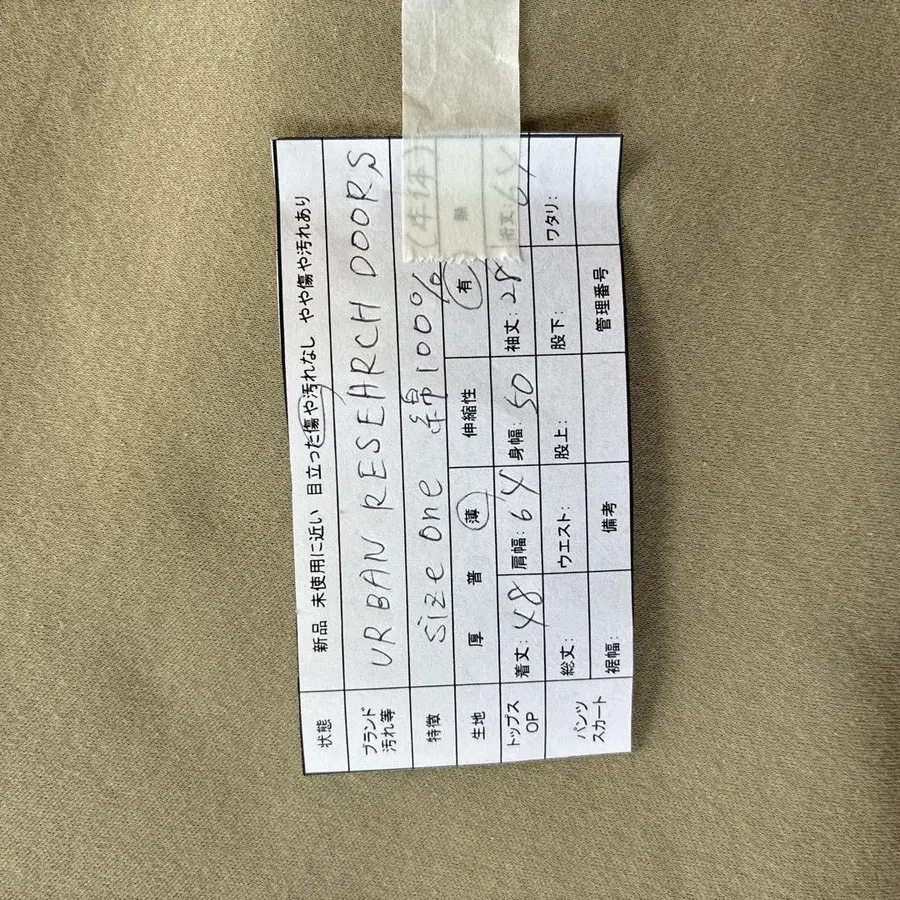 状態 新品 未使用に近い 目立った傷や汚れなし やや傷や汚れあり
ブランド 汚れ等 URBAN RESEARCH DOORS
特徴 size one 綿100% (本体)
生地 厚 普 薄 伸縮性 有 無
トップス OP 着丈: 48 肩幅: 64 身幅: 50 袖丈: 28 裄丈
パンツ スカート 総丈: ウエスト: 股上: 股下: ワタリ:
裾幅: 備考 管理番号